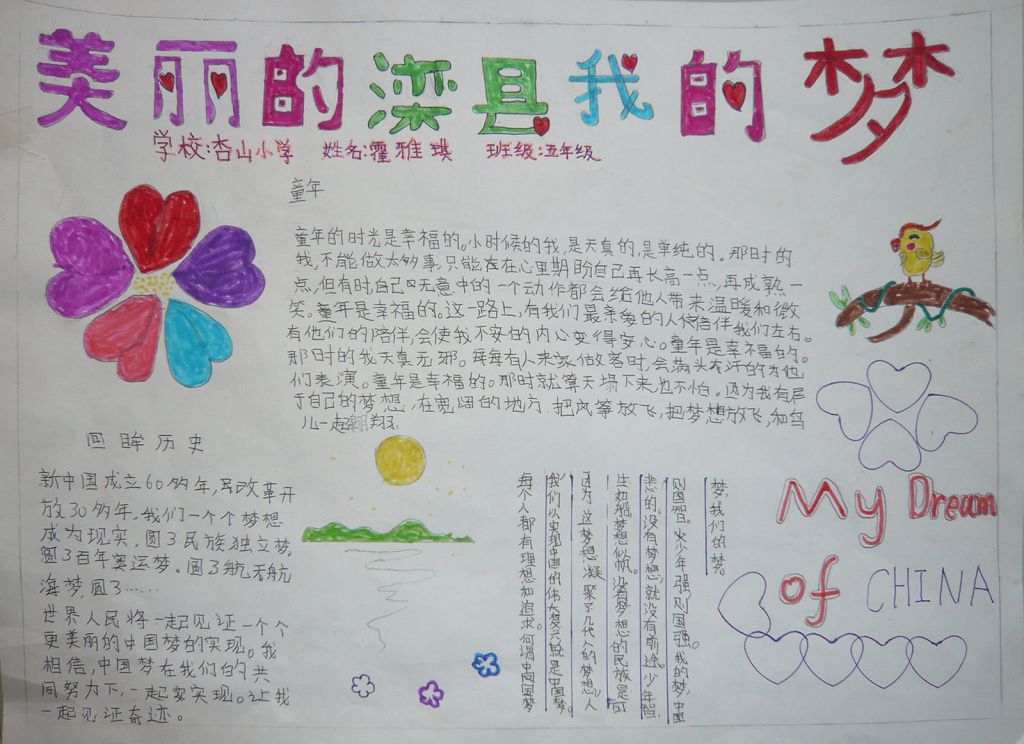 美丽的滦县我的梦
学校:杏山小学 姓名:霍雅琪 班级:五年级
童年
童年的时光是幸福的。小时候的我,是天真的,是单纯的。那时的
我,不能做太多事,只能在心里期盼自己再长高一点,再成熟一
点,但有时,自己无意中的一个动作都会给他人带来温暖和微
笑。童年是幸福的。这一路上,有我们最亲爱的人陪伴我们左右。
有他们的陪伴,会使我不安的内心变得安心。童年是幸福的。
那时的我天真无邪。每每有人来家做客时,会满头大汗的为他
们表演。童年是幸福的。那时就算天塌下来也不怕。因为我有属
于自己的梦想,在宽阔的地方,把风筝放飞,把梦想放飞,和鸟
儿一起翱翔。
回眸历史
新中国成立60多年,改革开
放30多年,我们一个个梦想
成为现实,圆了民族独立梦,
圆了百年奥运梦。圆了航天航
海梦,圆了……
世界人民将一起见证一个个
更美丽的中国梦的实现。我
相信,中国梦在我们的共
同努力下,一起实实现。让我
一起见证奇迹。
每个人都有理想和追求。何谓中国梦
我们以实现中国的伟大复兴就是中国梦。
因为,这个梦想,凝聚了几代人的梦想。人
生如船梦想似帆。没有梦想的民族是可
悲的。没有梦想,就没有前途。少年智,
则国智。少年强,则国强。我的梦,中国
梦,我们的梦。
My Dream
of CHINA